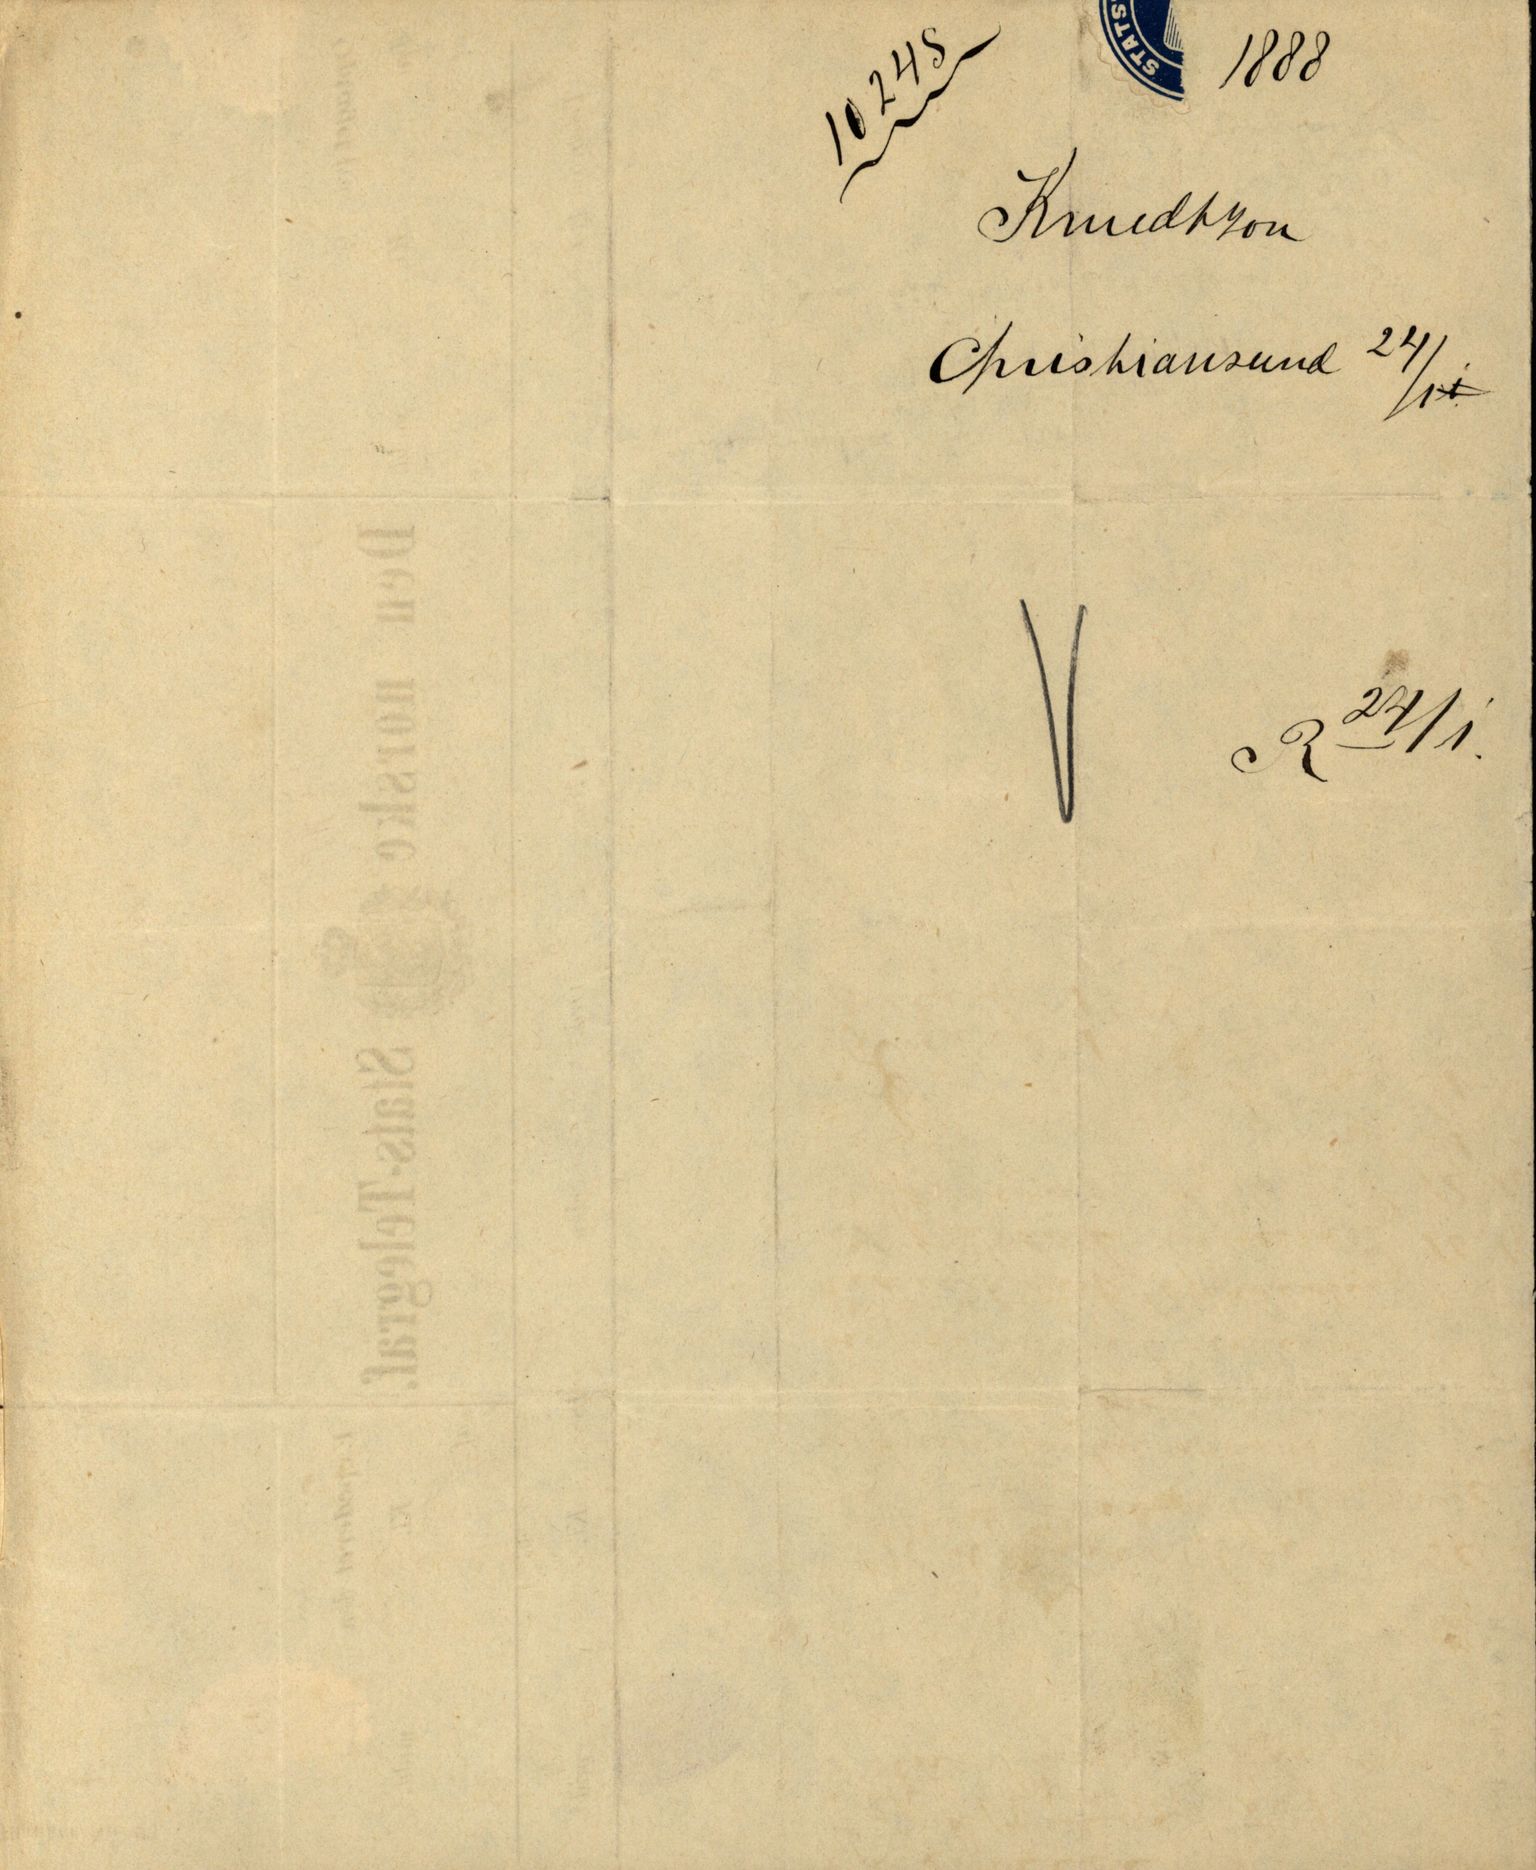 10245
STATS
1888
Knudtzon
Christiansund 24/1
R 24/1.
Den norske Stats-Telegraf.